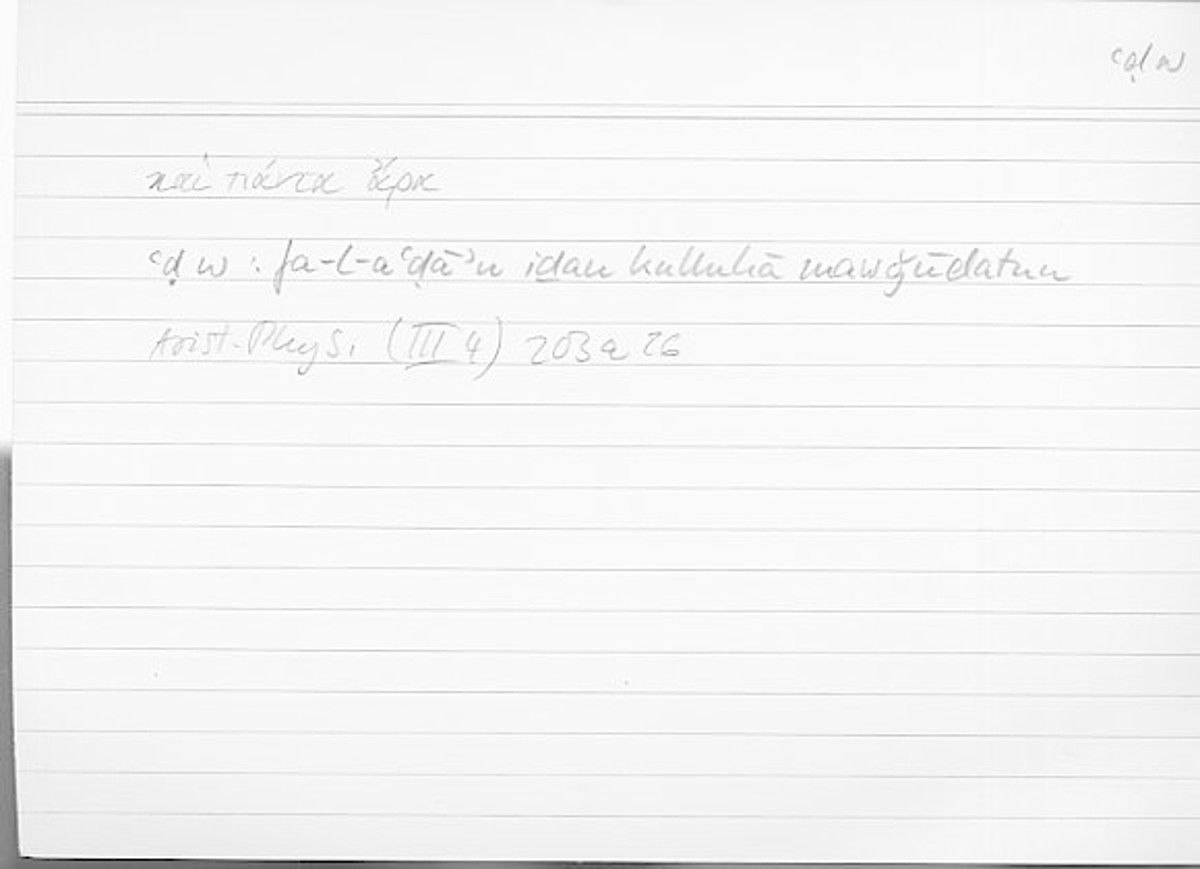 ʿḍw
καὶ πάντα ἄρα
ʿḍw : fa-l-aʿḍāʾu iḏan kulluhā mawǧūdatun
Arist. Phys. (III 4) 203 a 26